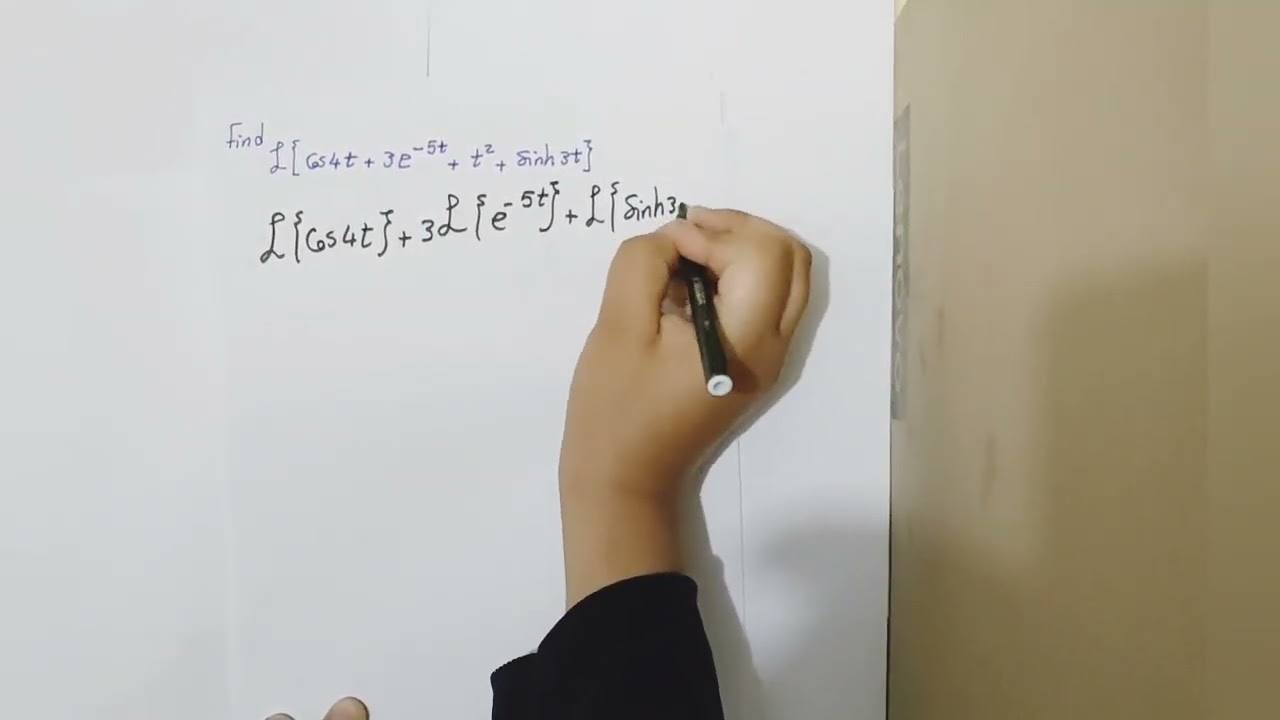 Find £{Cos4t + 3e⁻⁵ᵗ + t² + sinh3t}
£{Cos4t} + 3£{e⁻⁵ᵗ} + £{sinh3
Lenovo